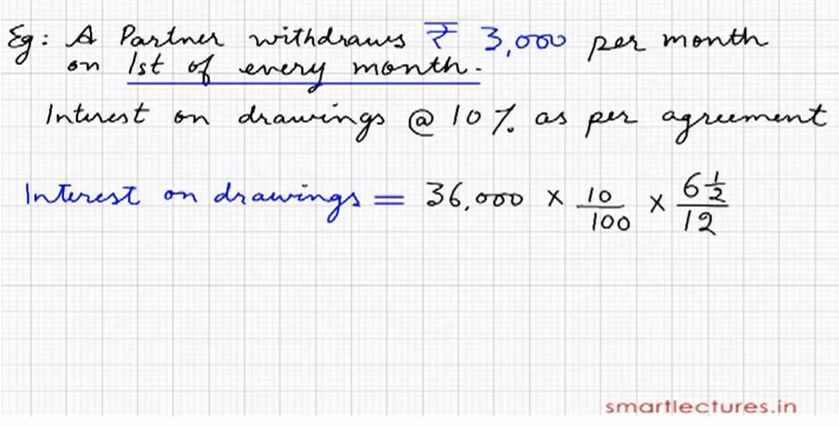 Eg: A Partner withdraws ₹ 3,000 per month
on 1st of every month.
Interest on drawings @ 10% as per agreement
Interest on drawings = 36,000 × 10/100 × 6½/12
smartlectures.in